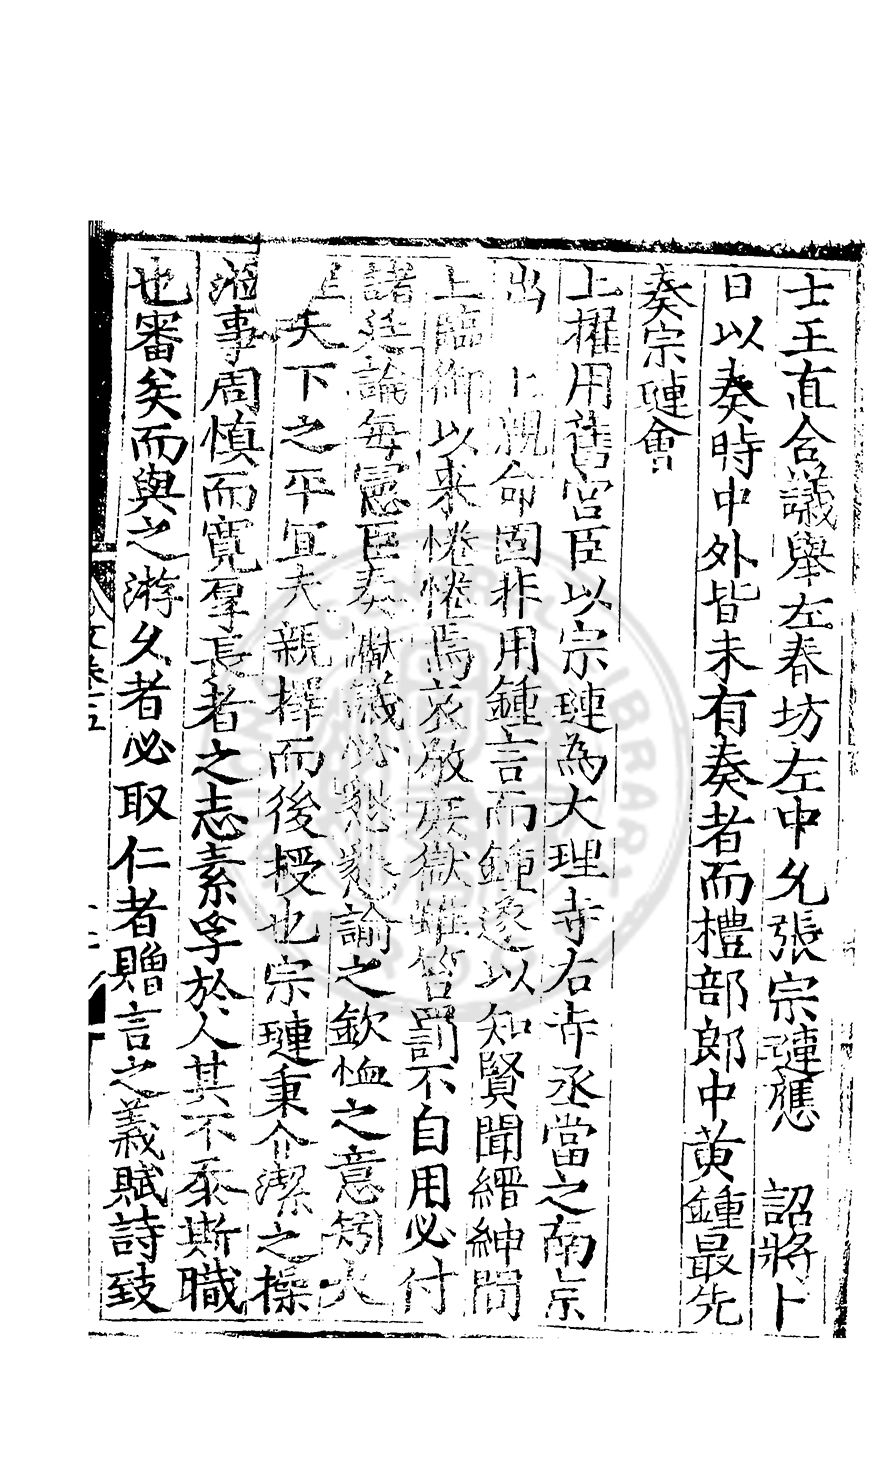 士王直合議舉左春坊左中允張宗璉應 詔將卜
日以奏時中外皆未有奏者而禮部郎中黃鍾最先
奏宗璉會
上擢用舊宮臣以宗璉為大理寺右寺丞當之南京
出 上親命固非用鍾言而鍾遂以知賢聞縉紳間
上臨御以來惓惓焉哀敬庶獄雖笞罰不自用必付
諸廷論每憲臣奏讞議必懇懇諭之欽恤之意矧大
理天下之平宜夫親擇而後授也宗璉秉介潔之操
涖事周慎而寬厚長者之志素孚於人其不忝斯職
也審矣而與之游久者必取仁者贈言之義賦詩致
文卷之五
NATIONAL CENTRAL LIBRARY